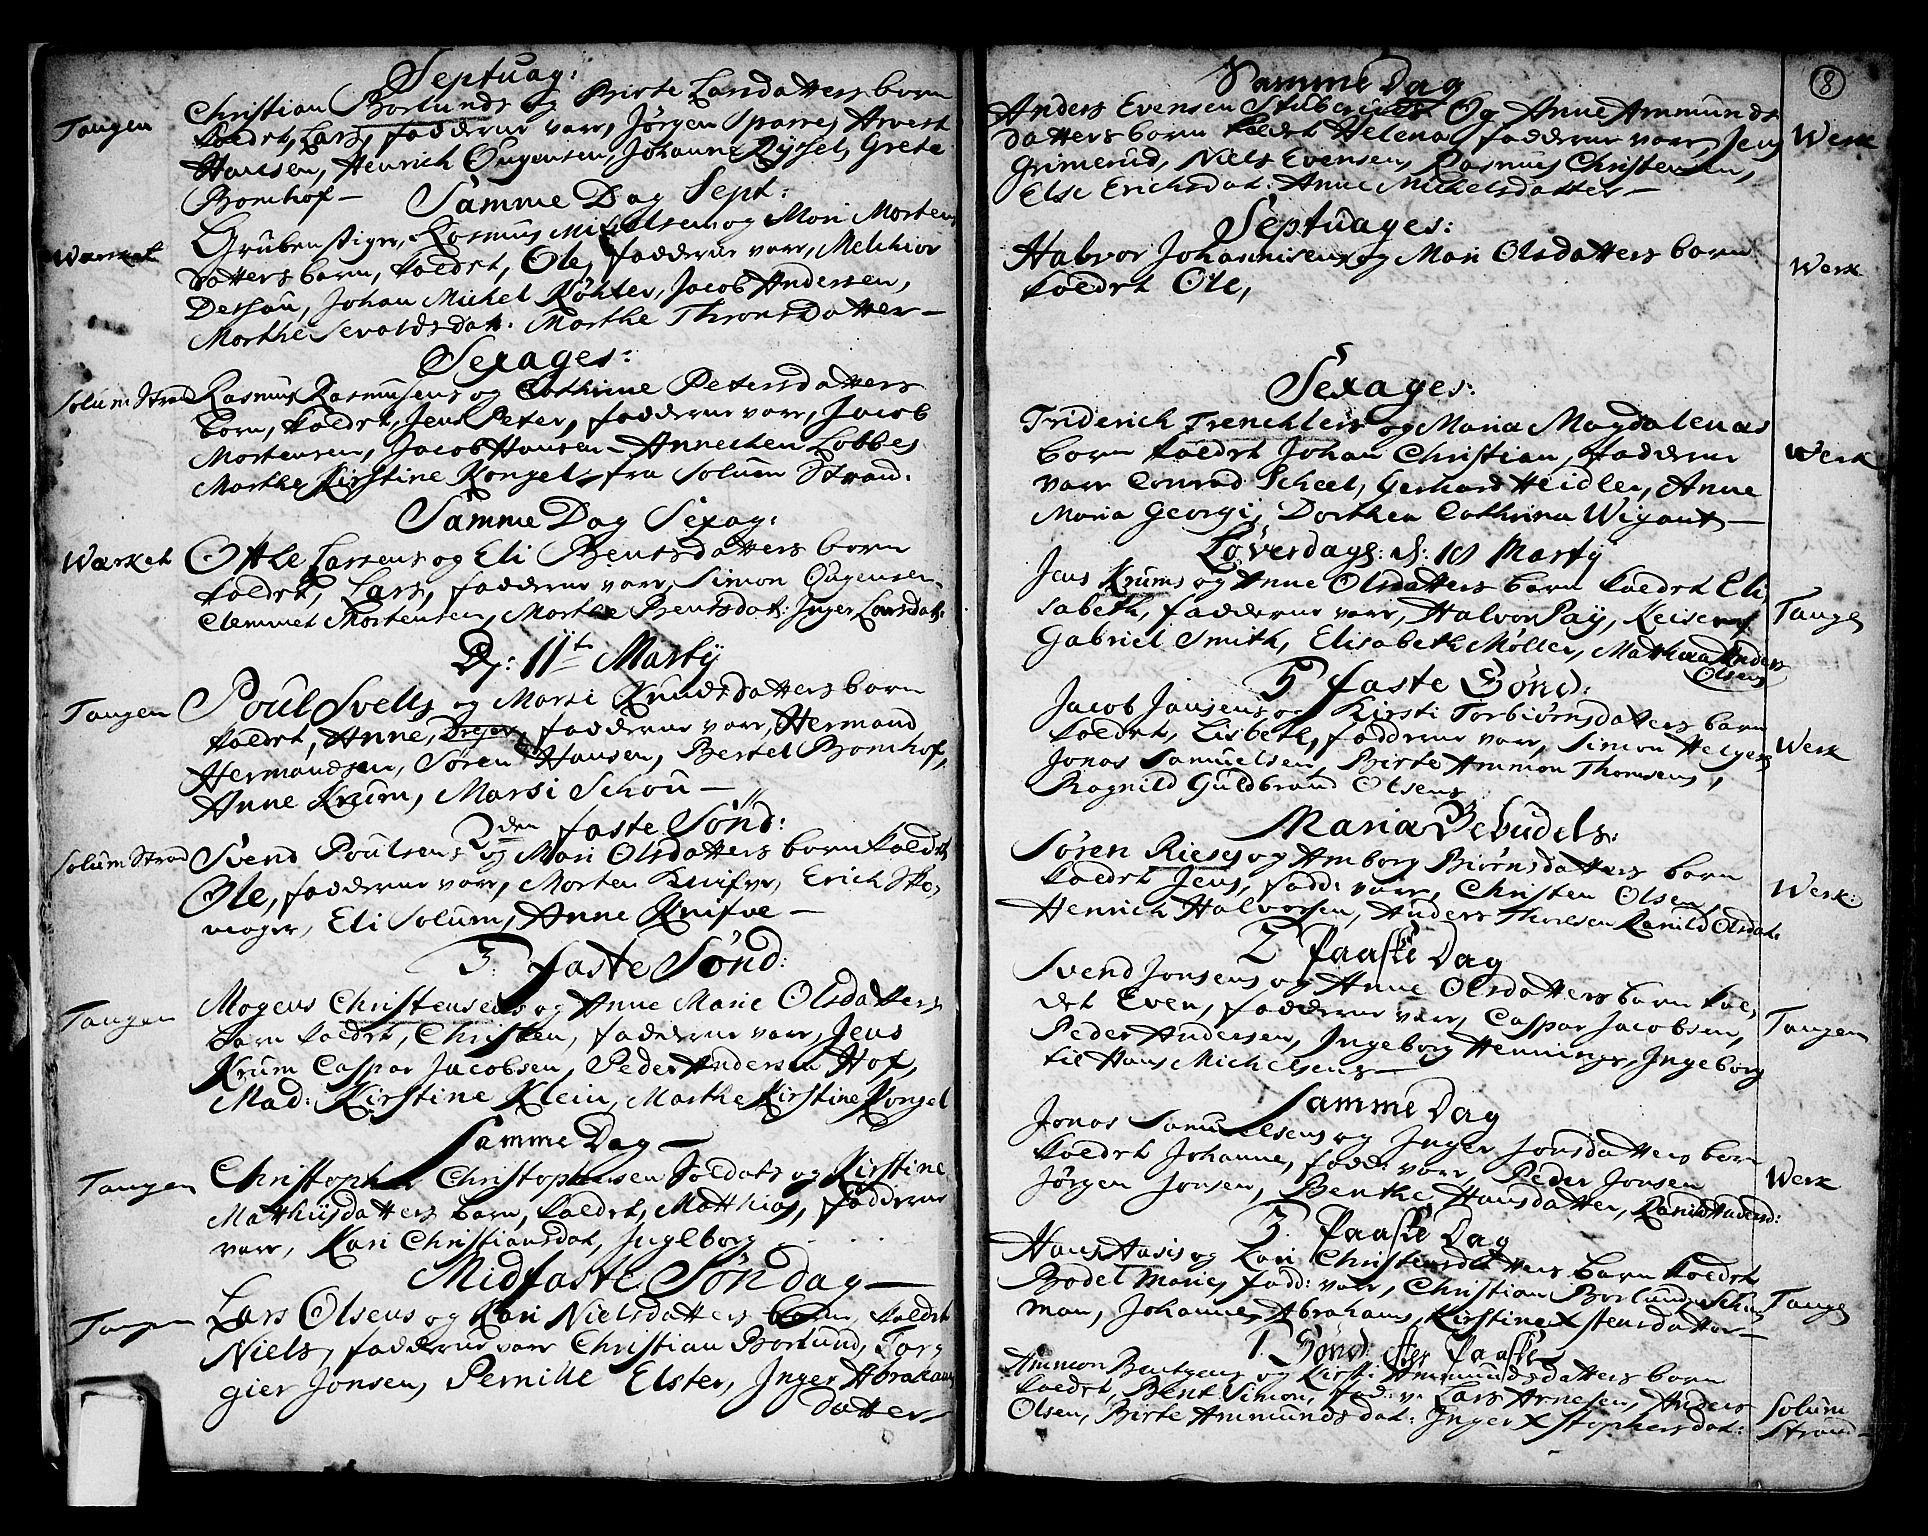 Septuag:
Tangen
Christian Borlunds og Birte Larsdatters barn
kaldet, Lars, fadderne varr, Jørgen Sparre, Arvest
Hansen, Henrich Ougensen, Johanne Ryssel, Grete
Bomhof —
Samme Dag Sept:
Wærket
Grubenstiger, Rasmus Mickelsens og Mari Mortens
datters barn, kaldet, Ole, fadderne varr, Melchior
Dessau, Johan Michel Köhler, Jacob Andersen,
Marthe Sevaldsdat: Marthe Thronsdatter —
Sexages:
Solum Strand
Rasmus Rasmusens og Cathrine Petersdatters
barn, kaldet, Jens Peter, fadderne varr, Jacob
Mortensen, Jacob Hansen — Annechen Lobbes
Marthe Kirstine Kongel, fra Solum Strand.
Samme Dag Sexag:
Wærket
Ottle Larsens og Eli Bentsdatters barn
kaldet, Lars, fadderne varr, Simon Ougensen
Clemmet Mortensen, Marthe Bentsdat: Inger Larsdat:
D: 11te Marty
Tangen
Poul Svells og Marsi Knudsdatters barn
kaldet, Anne, Dreyer, fadderne varr, Hermand
Hermandsen, Søren Hansen, Bertel Bomhof,
Anne Krum, Marsi Schou —
2den faste Sönd:
Solum Strand
Svend Poulsens og Mari Olsdatters barn kaldet
Ole, fadderne varr, Morten Knifve, Erich Sko,
mager, Eli Solum, Anne Knifve —
3. faste Sönd:
Tangen
Mogens Christensens og Anne Marie Olsdatters
barn kaldet, Christen, fadderne varr, Jens
Krum Caspar Jacobsen, Peder Andersen Hof,
Mad: Kirstine Klein, Marthe Kirstine Kongel
Samme Dag —
Tangen
Christopher Christophersen Soldats og Kirstine
Matthisdatters barn, kaldet, Matthias, fadderne
varr, Kari Christiansdat, Ingeborg . . . .
Midfaste Söndag —
Tangen
Lars Olsens og Kari Nielsdatters barn, kaldet
Niels, fadderne varr Christian Borlund, Tar
gier Jonsen, Pernille Elster, Inger Abraham
datter —
8
Samme Dag
Anders Evensen Og Anne Ammunds
datters barn kaldet Helena, fadderne varr, Jens
Werk
Grimerud, Niels Evensen, Rasmus Christensen,
Else Erichsdat: Anne Michelsdatter —
Septuages:
Halvor Johannisens og Mari Olsdatters barn
kaldet Ole,
Werk
Sexages:
Friderich Trenchlers og Maria Magdalenas
barn kaldet Johan Christian, fadderne
Werk
varr Conrad Scheel, Gerhard Heidler, Anne
Maria Georgi, Dorthea Cathrina Wigant —
Löverdags: d: 10 Marty
Jens Krums og Anne Olsdatters barn kaldet Eli
sabeth, fadderne varr, Halvor Pay, Keiser,
Tangen
Gabriel Smith, Elisabeth Møller, Mathea Anders
Olsens
5 faste Sönd:
Jacob Jansens og Kirsti Torbiørnsdatters barn
kaldet, Lisbeth, fadderne varr, Simon Helgers
Werk
Jonas Samuelsen, Birte Ammon Thomsens,
Ragnild Guldbrand Olsens
Maria Bebudels:
Søren Rieses og Amborg Biørnsdatters barn
kaldet Jens, fadd: varr, Christen Olsen,
Werk:
Henrich Halvorsen, Anders Thoresen Ranild Olsdat:
2 Paaske Dag
Svend Jonsens og Anne Olsdatters barn kal,
det Even, fadderne varr, Caspar Jacobsen,
Tangen
Peder Andersen, Ingeborg Hennings, Ingeborg
til Hans Michelsens —
Samme Dag
Jonas Samuelsens og Inger Jonsdatters barn
kaldet Johanne, fadd: varr, Peder Jonsen
Werk
Jørgen Jonsen, Benthe Hansdatter, Ranild Andersd:
3. Paaske Dag
Hans Hasis og Kari Christensdatters barn kaldet
Bodel Marie, fadd: varr, Christian Borlund,
Tangen
man, Johanne Abrahams, Kirstine Xstensdatter —
1. Sönd: efter Paaske
Ammon Bentsens og Kirsti Ammundsdatters barn
kaldet, Bent Simon, fad: v: Lars Arnesen, Anders
Olsen, Birte Ammunds dat: Inger Xstophersdat:
Solum
Strand —